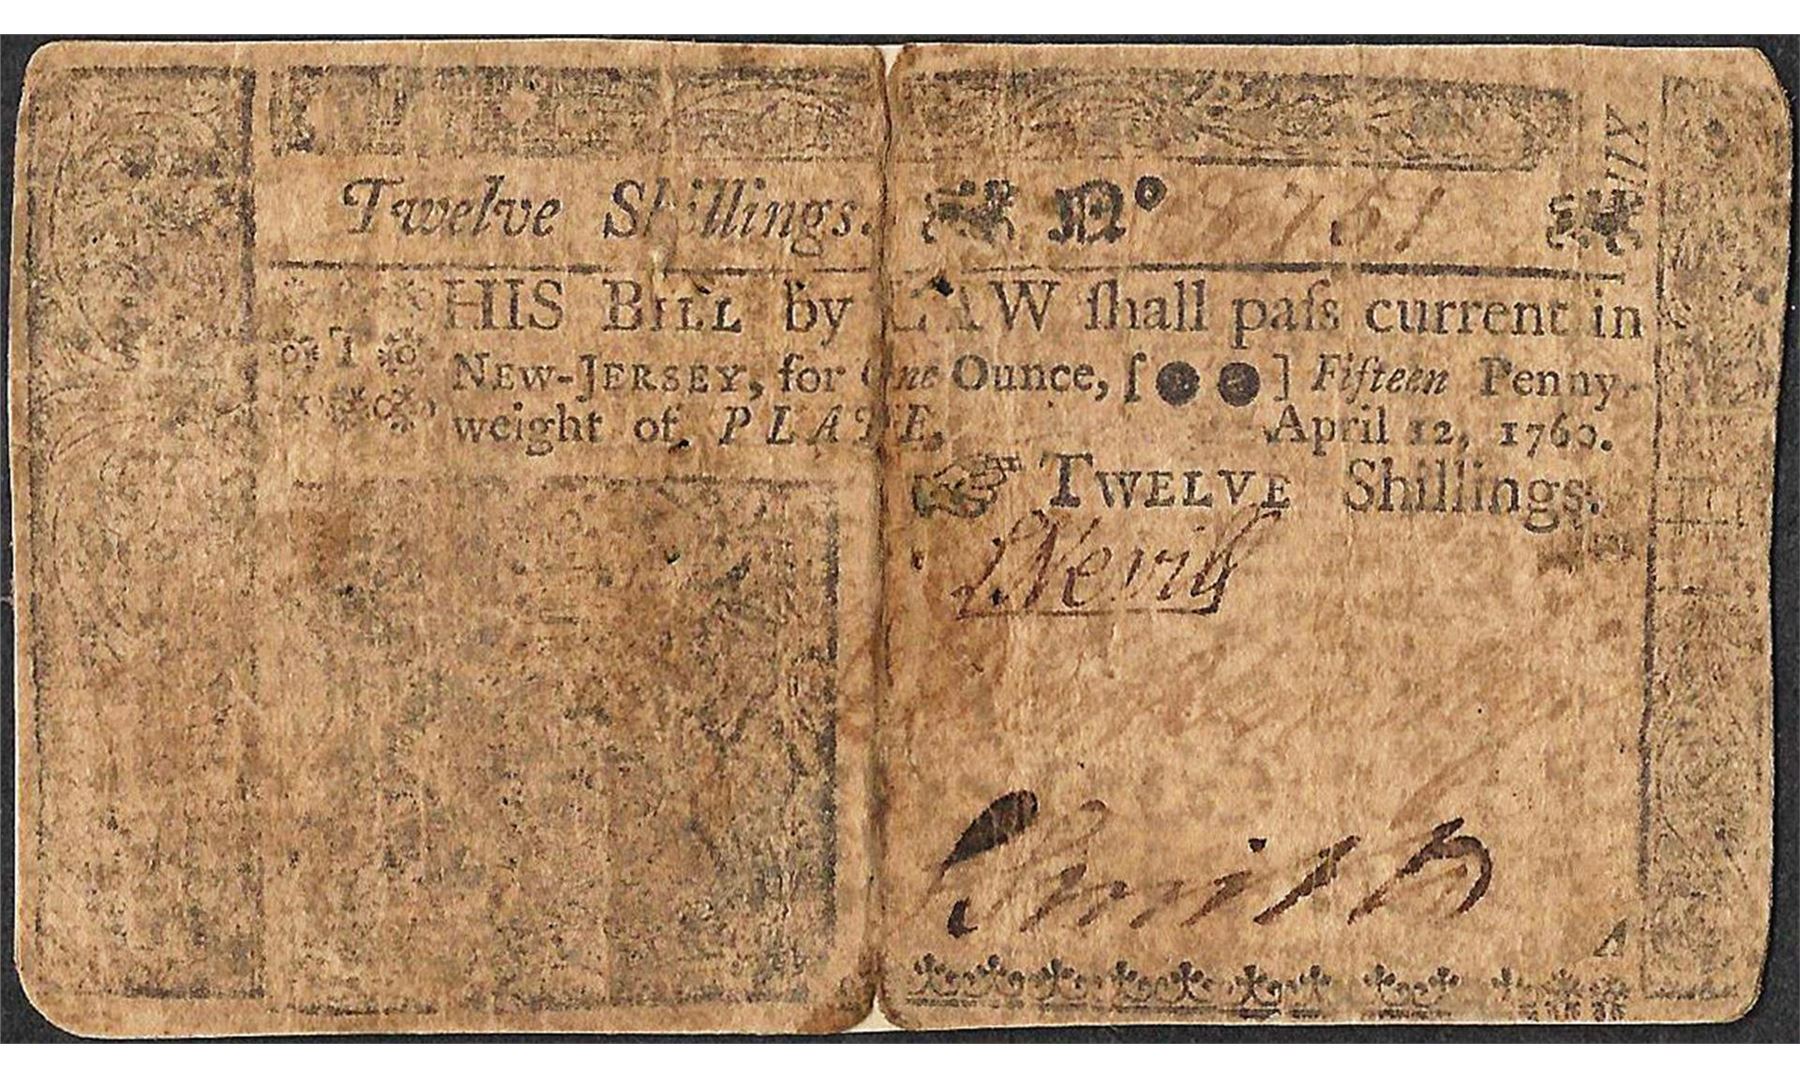 Twelve Shillings. No
THIS BILL by LAW ſhall paſs current in
NEW-JERSEY, for One Ounce, [●●] Fifteen Penny-
weight of PLATE, April 12, 1760.
TWELVE Shillings.
Nevill
Smith
A